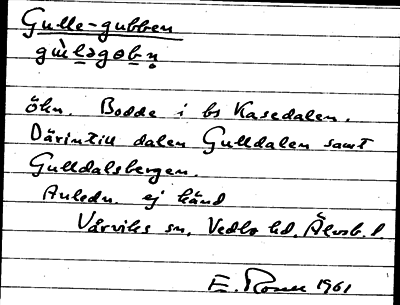 Gulle-gubben
gɯ̀ləgɵbn̥
ökn. Bodde i bs Kasedalen.
Därintill dalen Gulldalen samt
Gulldalsbergen.
Anledn. ej känd
Vårviks sn, Vedbo hd, Älvsb. l.
E. 1961